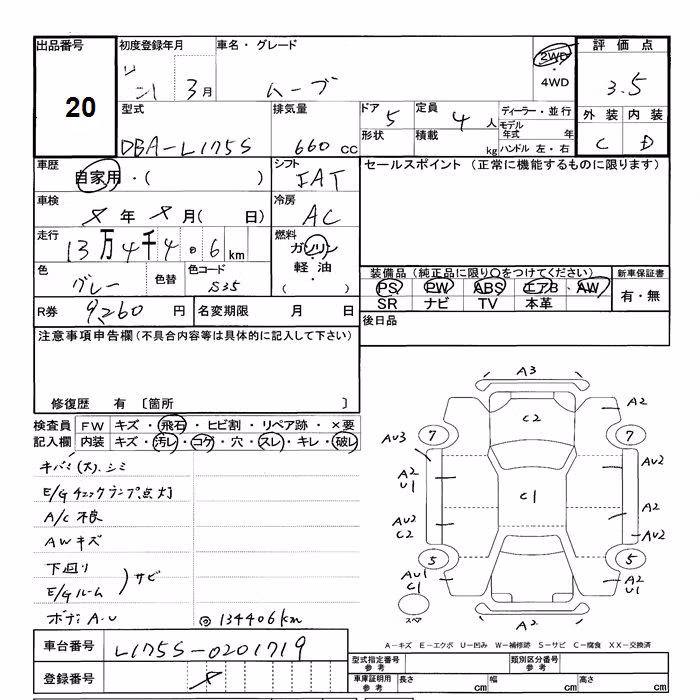 出品番号 初度登録年月 車名・グレード 評価点
20
3月 ムーブ 2WD・4WD 3.5
型式 排気量 ドア 定員 ディーラー・並行 外装 内装
DBA-L175S 660cc 5 4人 モデル年式 年 C D
形状 積載 kg ハンドル 左・右
車歴 自家用・( ) シフト IAT セールスポイント (正常に機能するものに限ります)
車検 X年X月( 日) 冷房 AC
走行 13万4千4.6km 燃料 ガソリン・軽油・( )
色 グレー 色替 色コード S35
装備品(純正品に限り○をつけてください) 新車保証書
PS PW ABS エアB AW 有・無
SR ナビ TV 本革
R券 9,260円 名変期限 月 日
後日品
注意事項申告欄(不具合内容等は具体的に記入して下さい)
修復歴 有 〔箇所 〕
検査員 FW キズ・飛石・ヒビ割・リペア跡・×要
記入欄 内装 キズ・汚レ・コゲ・穴・スレ・キレ・破レ
キバミ(大).シミ
E/Gチェックランプ点灯
A/C不良
AWキズ
下回り
E/Gルーム )サビ
ボディA.U ◎134406km
A3
A2
C2
7 7
AU3 AU2
A2 U1
C1
A2
AU2 C2
AU2
5 5
AU1 C1
A2 U1
スペア
A2
A-キズ E-エクボ U-凹み W-補修跡 S-サビ C-腐食 XX-交換済
車台番号 L175S-0201719
型式指定番号 参考 類別区分番号 参考
登録番号 X
車庫証明用 参考 長さ cm 幅 cm 高さ cm